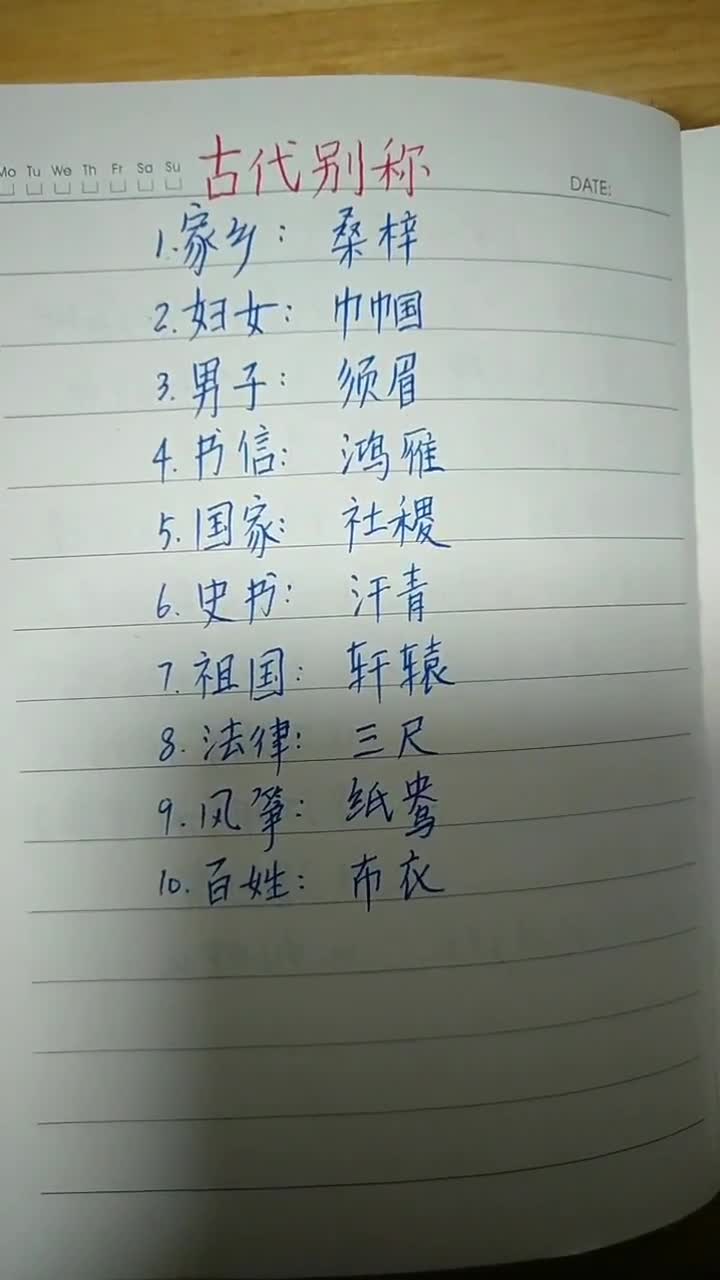 Mo Tu We Th Fr Sa Su
古代别称
DATE:
1.家乡：桑梓
2.妇女：巾帼
3.男子：须眉
4.书信：鸿雁
5.国家：社稷
6.史书：汗青
7.祖国：轩辕
8.法律：三尺
9.风筝：纸鸢
10.百姓：布衣